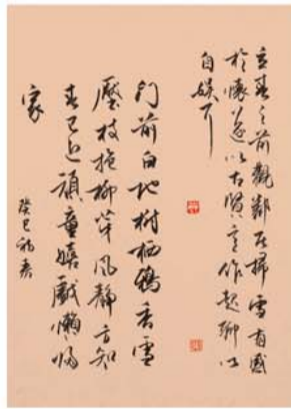 立春之前觀鄰居掃雪有感
於懷遂以古賢意作起聊以
自娛耳
門前白地樹栖鴉香雪
壓枝抱柳芽風靜方知
春已近頑童嬉戲懶歸
家
癸巳初春